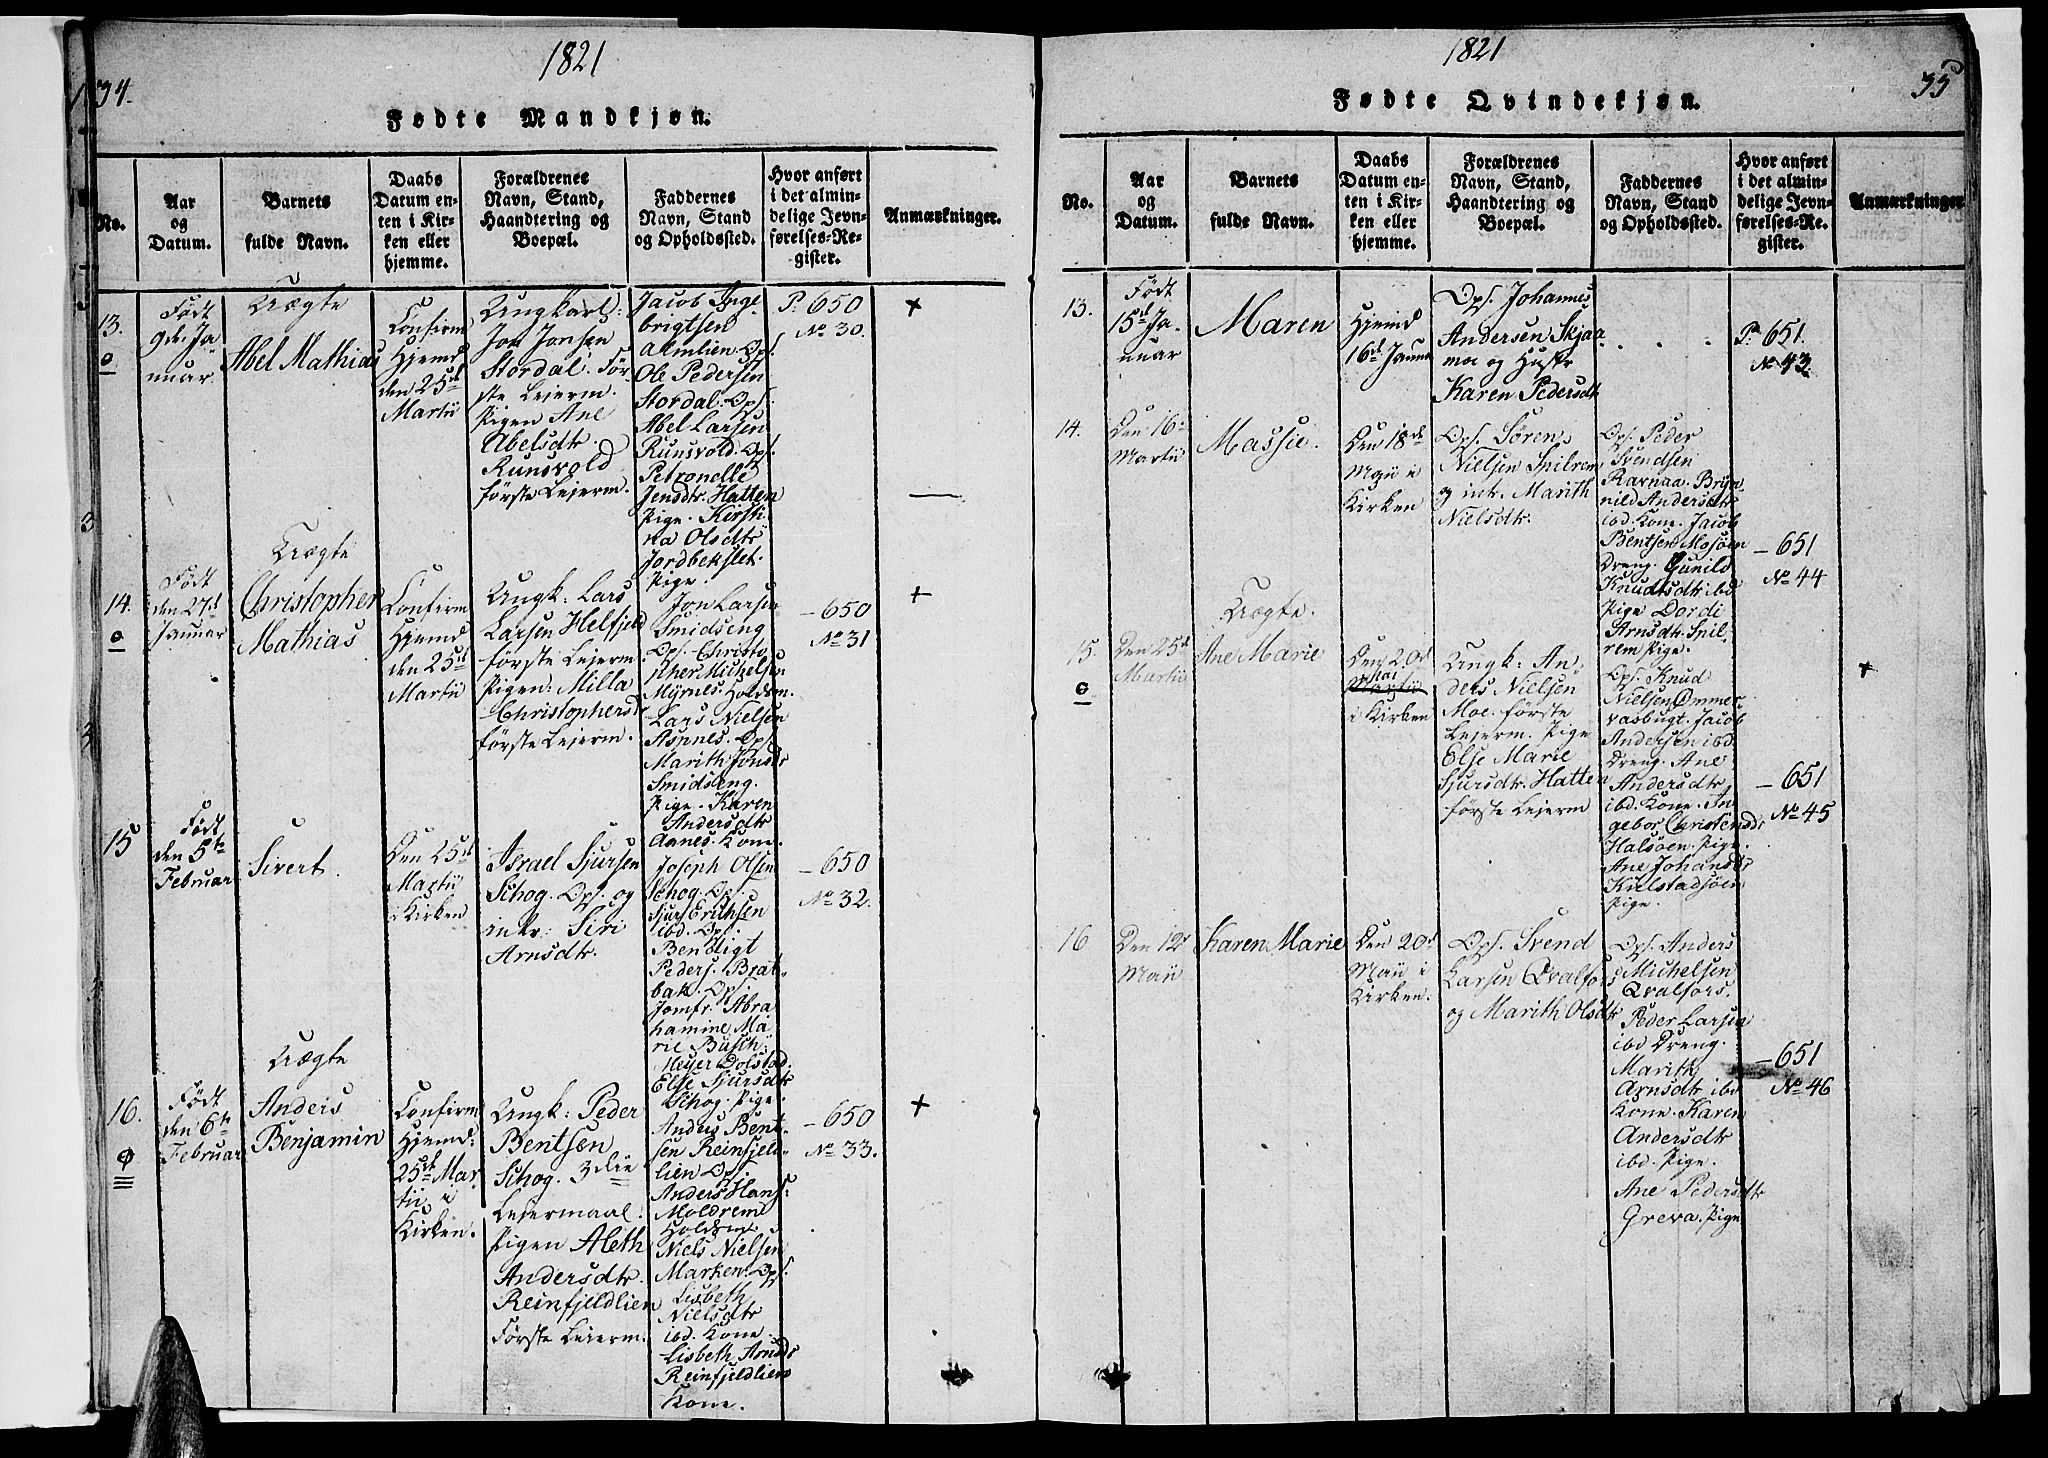 34.
1821
Fødte Mandkjøn.
No.
Aar
og
Datum.
Barnets
fulde Navn.
Daabs
Datum en-
ten i Kir-
ken eller
hjemme.
Forældrenes
Navn, Stand,
Haandtering og
Boepæl.
Faddernes
Navn, Stand
og Opholdssted.
Hvor anført
i det almin-
delige Jevn-
førelses-Re-
gister.
Anmærkninger.
13.
Født
9de Ja
nuar
Uægte
Abel Mathias
Confirm
Hjemd
den 25de
Martii
Ungkarl:
Jon Jonsen
Stordal. För
ste Leierm.
Pigen Ane
Abelsdtr.
Runsvold
første Leierm.
Jacob Inge
brigtsen
Almlien. Ops.
Ole Pedersen
Stordal. Ops.
Abel Larsen
Runsvold. Ops.
Petronelle
Jensdtr. Hatten
Pige. Kirsti
na Olsdtr
Jordbekslet.
Pige.
P. 650
No 30.
+
14.
Født
den 27de
Januar
Uægte
Christopher
Mathias
Confirm
Hjemd
den 25de
Martii
Ungk: Lars
Larsen Helfjeld
første Leierm.
Pigen: Milla
Christophersdr
første Leierm.
Jon Larsen
Smidseng
Ops. Christo
pher Michelsen
Myrnes. Holdsm.
Lars Nielsen
Aspnes. Ops.
Marith Jonsdr
Smidseng.
Pige. Karen
Andersdtr
Aanes. Kone.
– 650
No 31
+
15
Født
den 5te
Februar
Sivert.
Den 25de
Martii
i Kirken
Israel Sjursen
Schog. Ops. og
intr: Siri
Arnsdtr.
Joseph Olsen
Schog. Ops.
Sjurs Erichsen
ibd. Ops.
Bendigt
Peders. Brat-
bak. Ops.
Jomfr. Abra
hamine Ma
rie Busch
Meyer Dolstad.
Else Sjursdtr
Schog. Pige.
– 650
No 32.
16.
Født
den 6te
Februar
Uægte
Anders
Benjamin
Confirm
Hjemd:
25de Mar
tii i
Kirken.
Ungk: Peder
Bentsen
Schog. 3die
Leiermaal.
Pigen Aleth
Andersdtr.
Reinfjeldlien
Første Leierm.
Anders Bent-
sen Reinfjeld-
lien Ops.
Anders Hans:
Moldrem
Holdsm
Niels Nielsen
Marken. Ops.
Lisbeth
Nielsdtr
ibd. Kone.
Lisbeth Arnsdr
Reinfjeldliens
Kone.
– 650
No 33.
+
1821
35
Fødte Qvindekjøn.
No.
Aar
og
Datum.
Barnets
fulde Navn.
Daabs
Datum en-
ten i Kir-
ken eller
hjemme.
Forældrenes
Navn, Stand,
Haandtering og
Boepæl.
Faddernes
Navn, Stand
og Opholdssted.
Hvor anført
i det almin-
delige Jevn-
førelses-Re-
gister.
Anmærkninger
13.
Født
15de Ja-
nuar
Maren
Hjemd
16de Janua
Ops. Johannes
Andersen Skjaa
mo og Hustr
Karen Pedersdtr
P. 651.
No 43.
14.
Den 16de
Martii
Massie.
Den 18de
Maii i
Kirken
Ops. Søren
Nielsen Spilrem
og intr. Marith
Nielsdtr.
Ops. Peder
Svendsen
Ravnaa. Bryn
nild Andersdtr
ibd. Kone. Jacob
Bentsen Mosøen
Dreng. Gunild
Knudtsdtr ibd
Pige Dordi
Arnsdtr. Spil
rem Pige.
– 651
No 44
15.
Den 25de
Martii
Uægte.
Ane Marie
Den 20de
Mai
Martii
i Kirken
Ungk: An
ders Nielsen
Moe. første
Leierm. Pige
Else Marie
Sjursdtr. Hatten
første Leierm
Ops. Knud
Nielsen Ommer
vasbugt. Jacob
Andersen ibd.
Dreng. Ane
Andersdtr
ibd. Kone. In
gebor Christensdr
Halsøen. Pige.
Ane Johansdr
Kulstadsjøen
Pige.
– 651
No 45
+
16
Den 12te
Maii
Karen Marie
Den 20de
Maii i
Kirken.
Ops. Svend
Larsen Qvalfors
og Marith Olsdtr
Ops. Anders
Michelsen
Qvalfors.
Peder Larsen
ibd Dreng.
Marith
Arnsdtr ibd
Kone. Karen
Andersdtr
ibd. Pige.
Ane Pedersdtr
Greva. Pige
– 651
No 46